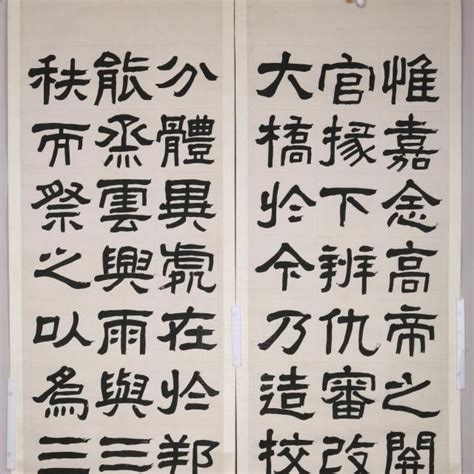 惟嘉念高帝之開
官掾下辨仇審改
大橋於今乃造校
分體異處在於邦
能烝雲興雨與三
秩而祭之以為三